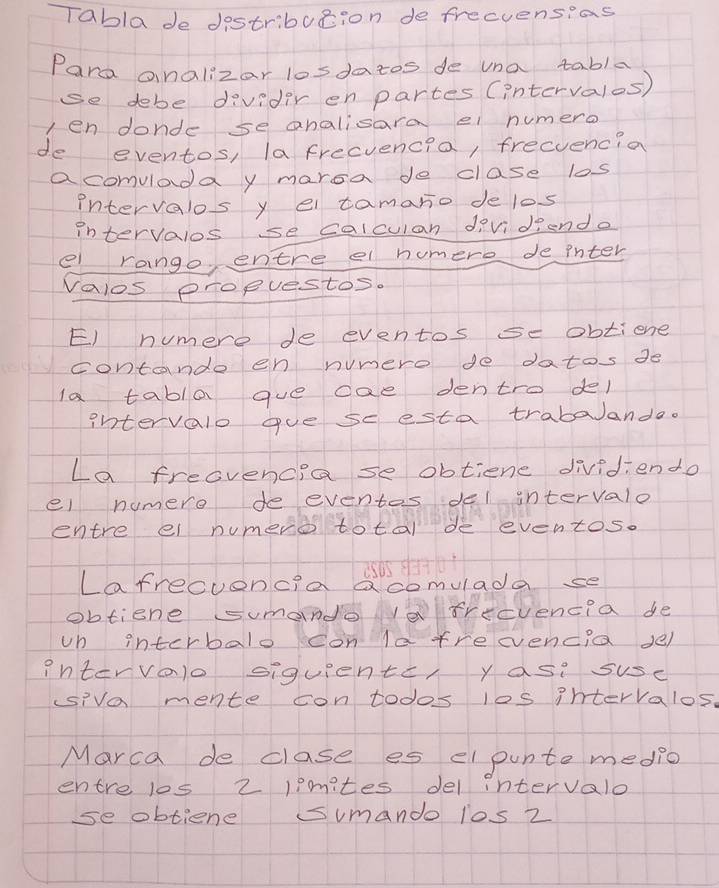 Tabla de distribucion de frecuensias
Para analizar los datos de una tabla
se debe dividir en partes (intervalos)
, en donde se analisara el numero
de eventos, la frecuencia, frecuencia
acomulada y marsa de clase los
intervalos y el tamaño de los
intervalos se calculan dividiendo
el rango, entre el numero de inter
valos propuestos.
El numero de eventos se obtiene
contando en numero de datos de
la tabla que cae dentro del
intervalo que se esta trabaJando.
La frecuencia se obtiene dividiendo
el numero de eventos del intervalo
entre el numero total de eventos.
La frecuencia acomulada se
obtiene sumando la frecuencia de
un interbalo con la frecuencia del
intervalo siguiente, y asi suse
siva mente con todos los intervalos.
Marca de clase es el punto medio
entre los 2 limites del intervalo
se obtiene sumando los 2